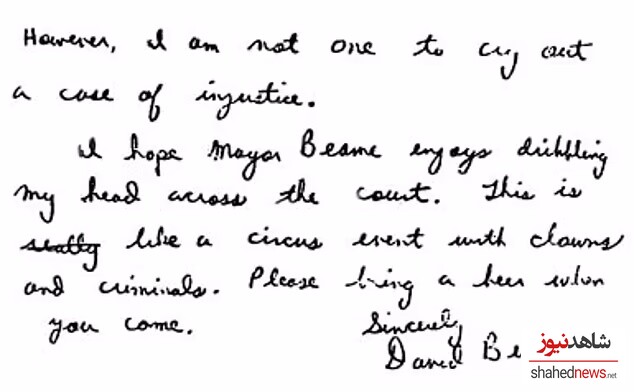 However, I am not one to cry out
a case of injustice.
I hope Mayor Beame enjoys dribbling
my head across the court. This is
really like a circus event with clowns
and criminals. Please bring a beer when
you come.
Sincerely
David Be
شاهدنیوز
shahednews.net